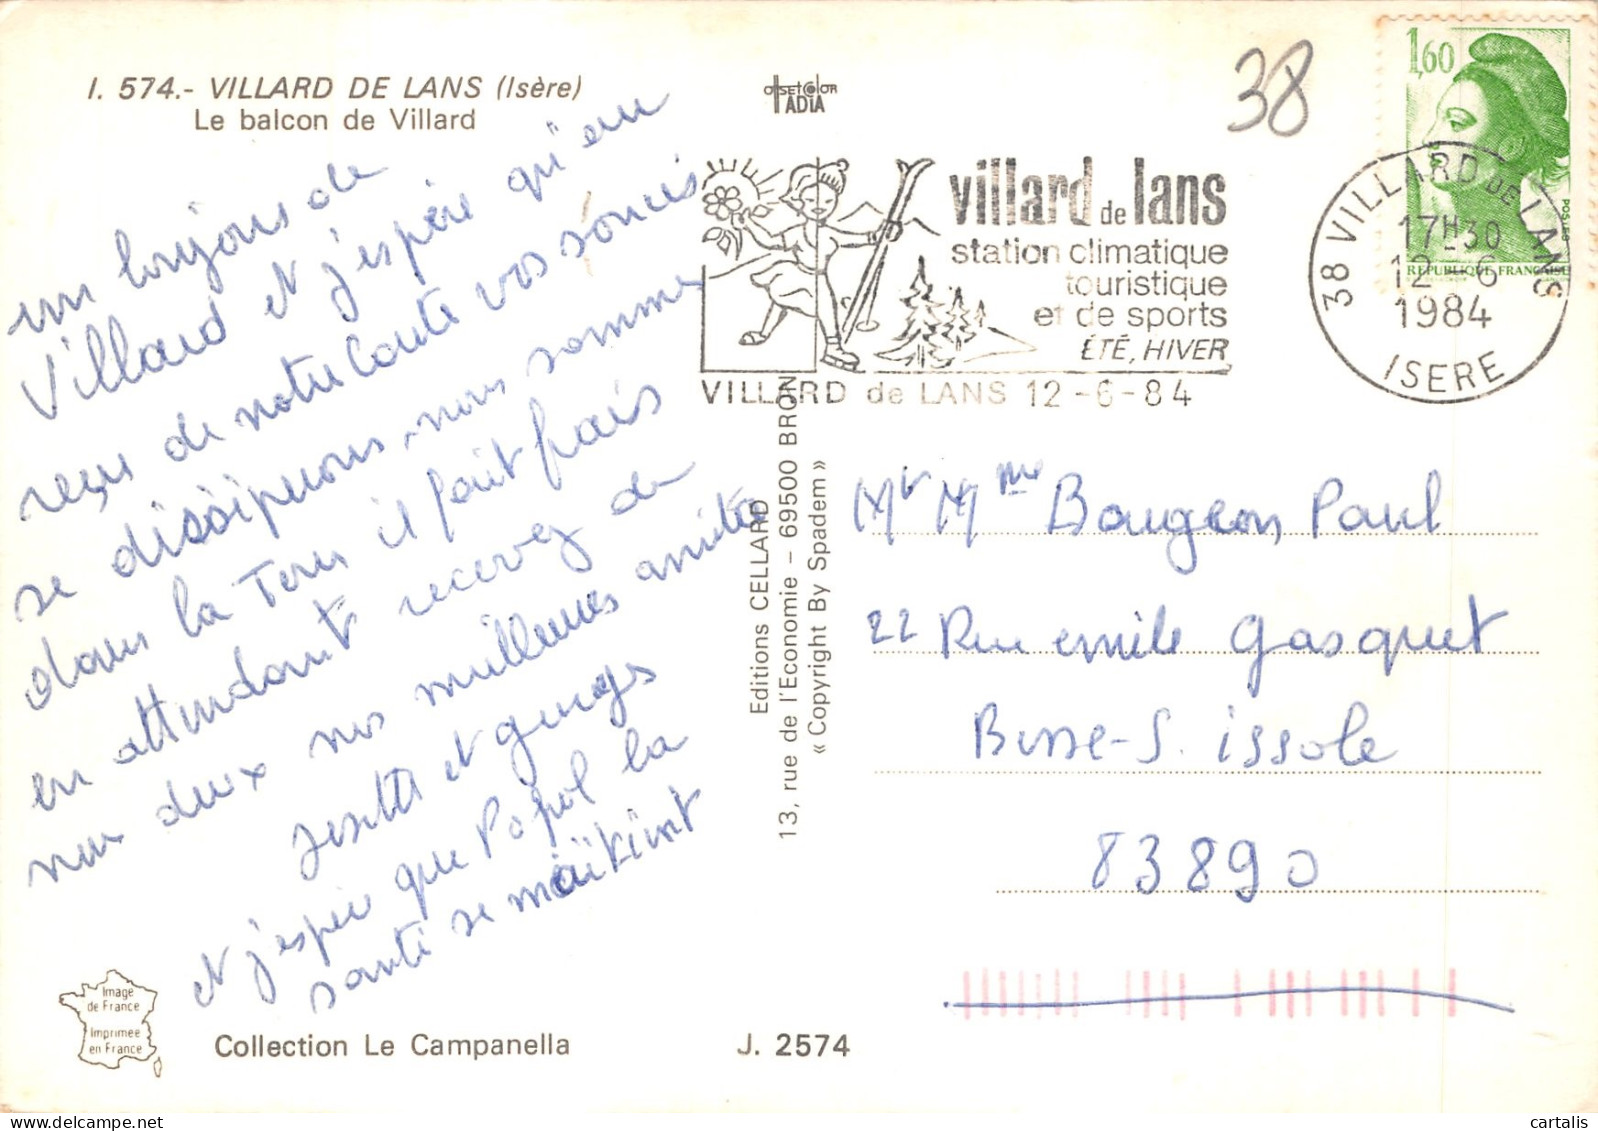 I. 574.- VILLARD DE LANS (Isère)
Le balcon de Villard
offsetcolor
IADIA
38
1,60
POSTES
REPUBLIQUE FRANÇAISE
villard de lans
station climatique
touristique
et de sports
ÉTÉ, HIVER
VILLARD de LANS 12-6-84
38 VILLARD DE LANS
17H30
12-6
1984
ISERE
un bonjour de
Villard et j'espère qu'en
reçu de notre carte vos soucis
se dissiperons, nous sommes
dans la il fait frais
en attendant recevez de
nous deux nos meilleures amitiés
et georges
et j'espère que Popol la
santé se maintient
Editions CELLARD
13, rue de l'Economie - 69500 BRON
« Copyright By Spadem »
Mr Mme Bougeon, Paul
22 Rue emile gasquet
Besse-S. issole
83890
Image
de France
Imprimée
en France
Collection Le Campanella
J. 2574
cartalis